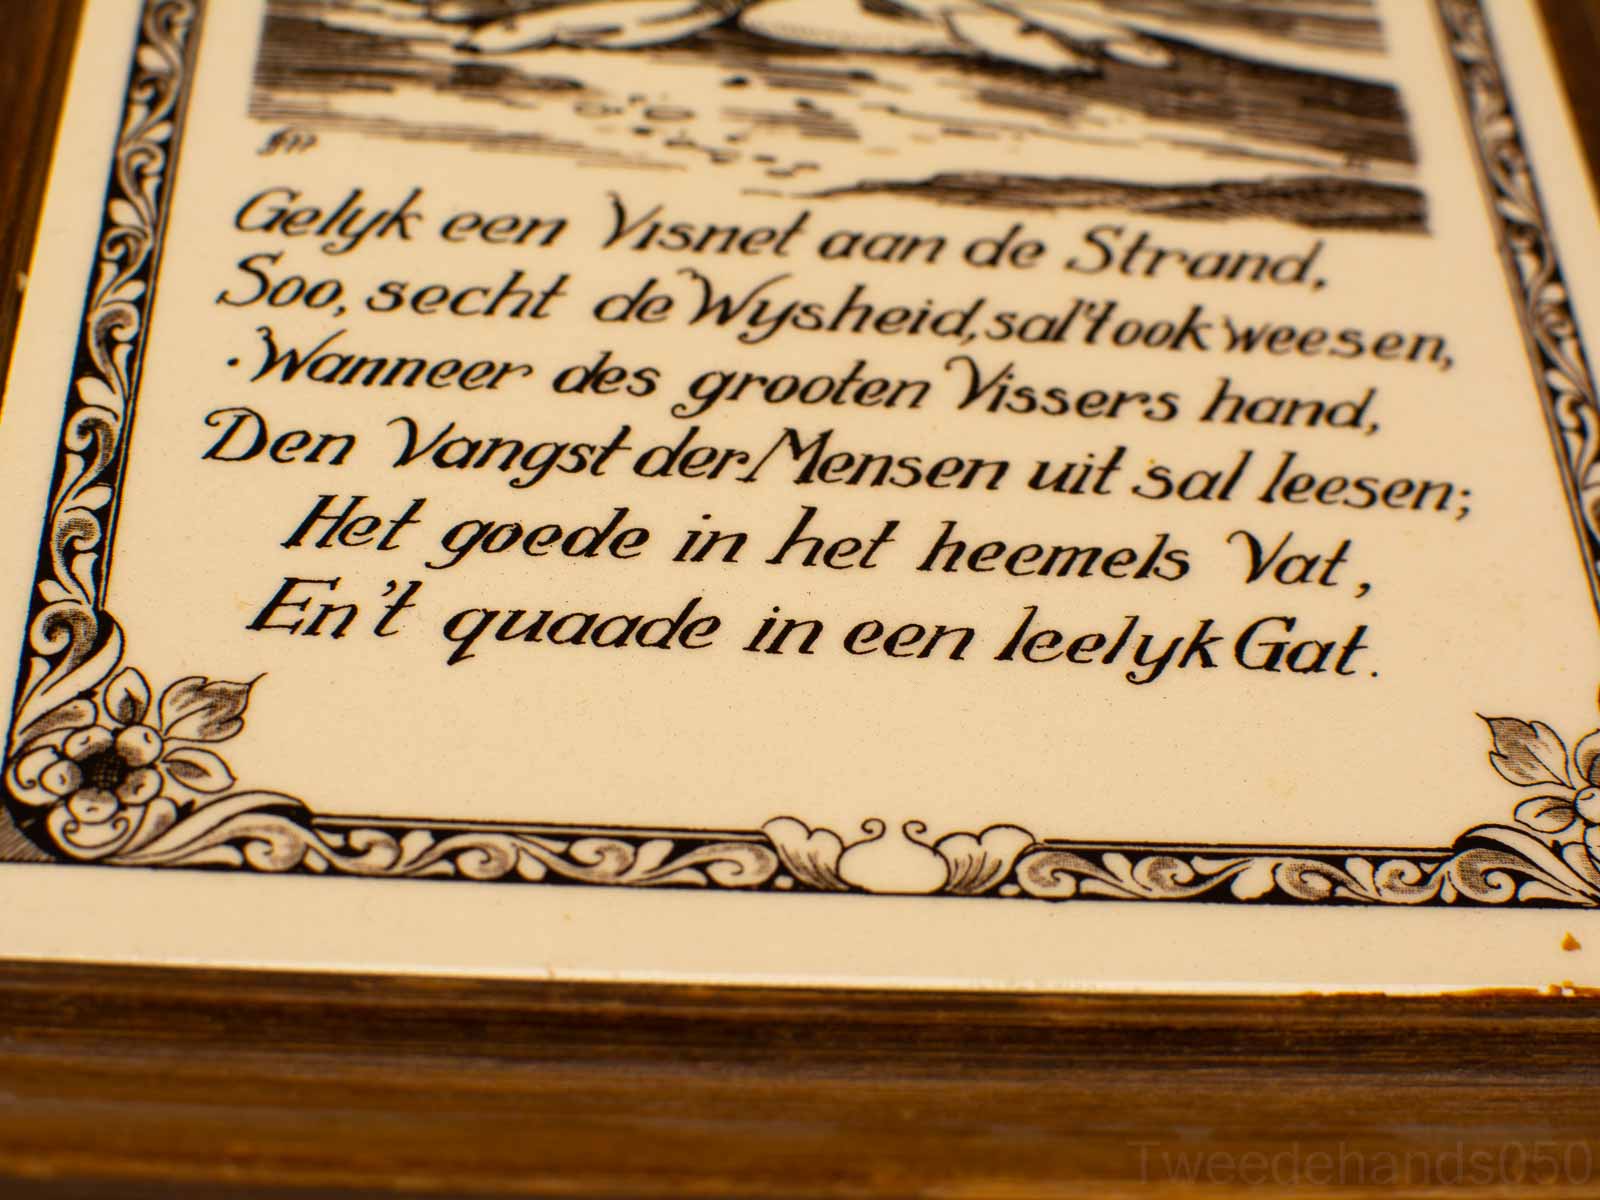 Gelyk een Visnet aan de Strand,
Soo, secht de Wysheid, sal't ook weesen,
Wanneer des grooten Vissers hand,
Den Vangst der Mensen uit sal leesen;
Het goede in het heemels Vat,
En't quaade in een leelyk Gat.
Tweedehands050